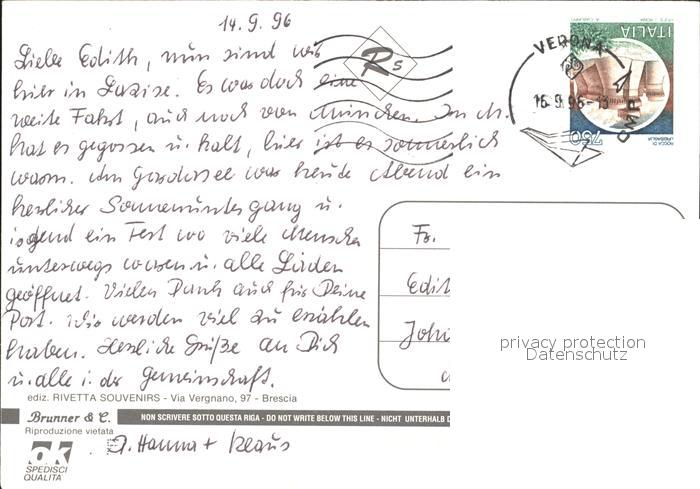 14.9.96
Liebe Edith, nun sind wir
hier in Lazise. Es war doch eine
weite Fahrt, auch noch von München. In M.
hat es gegossen u. kalt, hier ist es sommerlich
warm. Am Gardasee war heute Abend ein
herrlicher Sonnenuntergang u.
irgend ein Fest wo viele Menschen
unterwegs waren u. alle Läden
geöffnet. Vielen Dank auch für Deine
Post. Wir werden viel zu erzählen
haben. Herzliche Grüße an Dich
u. alle i. der Gemeinschaft.
Hanna + Klaus
Fr.
Edit
Joh
ITALIA
750
ROCCA DI
URBISAGLIA
VERONA
CMP
16.9.96-13
Rs
privacy protection
Datenschutz
ediz. RIVETTA SOUVENIRS - Via Vergnano, 97 - Brescia
Brunner & C.
NON SCRIVERE SOTTO QUESTA RIGA - DO NOT WRITE BELOW THIS LINE - NICHT UNTERHALB D
Riproduzione vietata
ok
SPEDISCI
QUALITA'